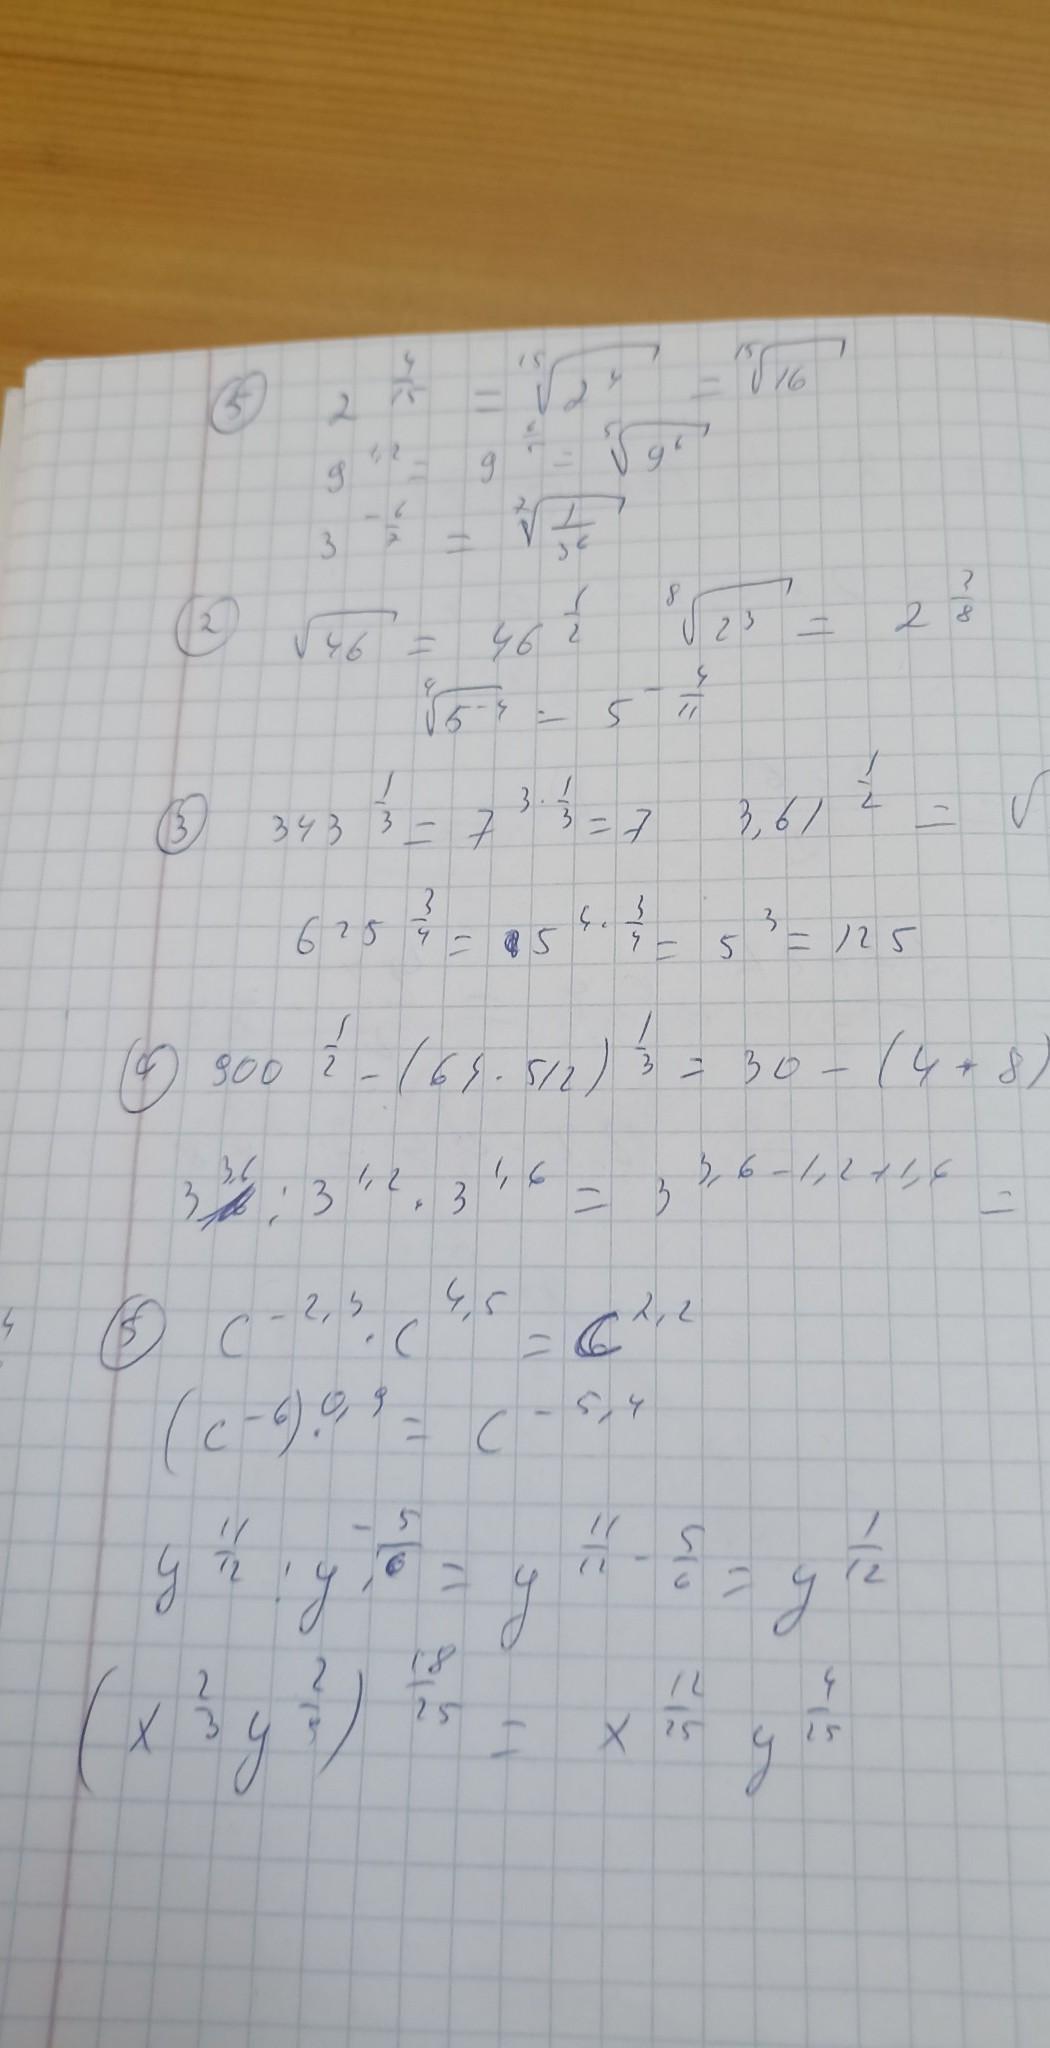 5 2^{\frac{4}{15}} = \sqrt[15]{2^4} = \sqrt[15]{16}
9^{1,2} = 9^{\frac{6}{5}} = \sqrt[5]{9^6}
3^{-\frac{6}{7}} = \sqrt[7]{\frac{1}{3^6}}
2 \sqrt{46} = 46^{\frac{1}{2}} \sqrt[8]{2^3} = 2^{\frac{3}{8}}
\sqrt[4]{5^{-4}} = 5^{-\frac{4}{11}}
3 343^{\frac{1}{3}} = 7^{3 \cdot \frac{1}{3}} = 7 3,61^{\frac{1}{2}} = \sqrt{}
625^{\frac{3}{4}} = 5^{4 \cdot \frac{3}{4}} = 5^3 = 125
4 900^{\frac{1}{2}} - (64 \cdot 512)^{\frac{1}{3}} = 30 - (4 \cdot 8)
3^{3,6} : 3^{1,2} \cdot 3^{1,6} = 3^{3,6 - 1,2 + 1,6} =
5 c^{-2,3} \cdot c^{4,5} = c^{2,2}
(c^{-6})^{0,9} = c^{-5,4}
y^{\frac{11}{12}} : y^{-\frac{5}{6}} = y^{\frac{11}{12} - \frac{5}{6}} = y^{\frac{1}{12}}
(x^{\frac{2}{3}} y^{\frac{2}{9}})^{\frac{18}{25}} = x^{\frac{12}{25}} y^{\frac{4}{25}}